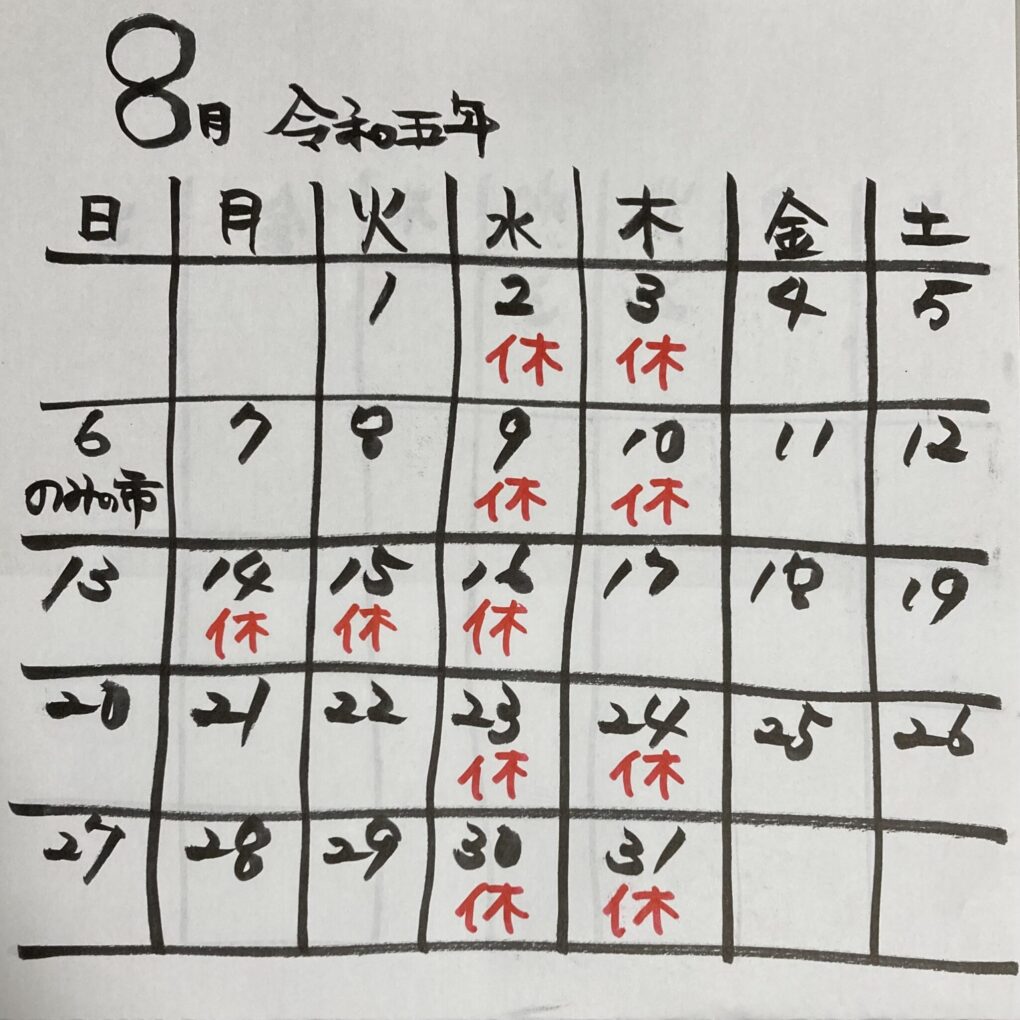 8月 令和五年
日 月 火 水 木 金 土
1 2 3 4 5
休 休
6 7 8 9 10 11 12
のみの市 休 休
13 14 15 16 17 18 19
休 休 休
20 21 22 23 24 25 26
休 休
27 28 29 30 31
休 休